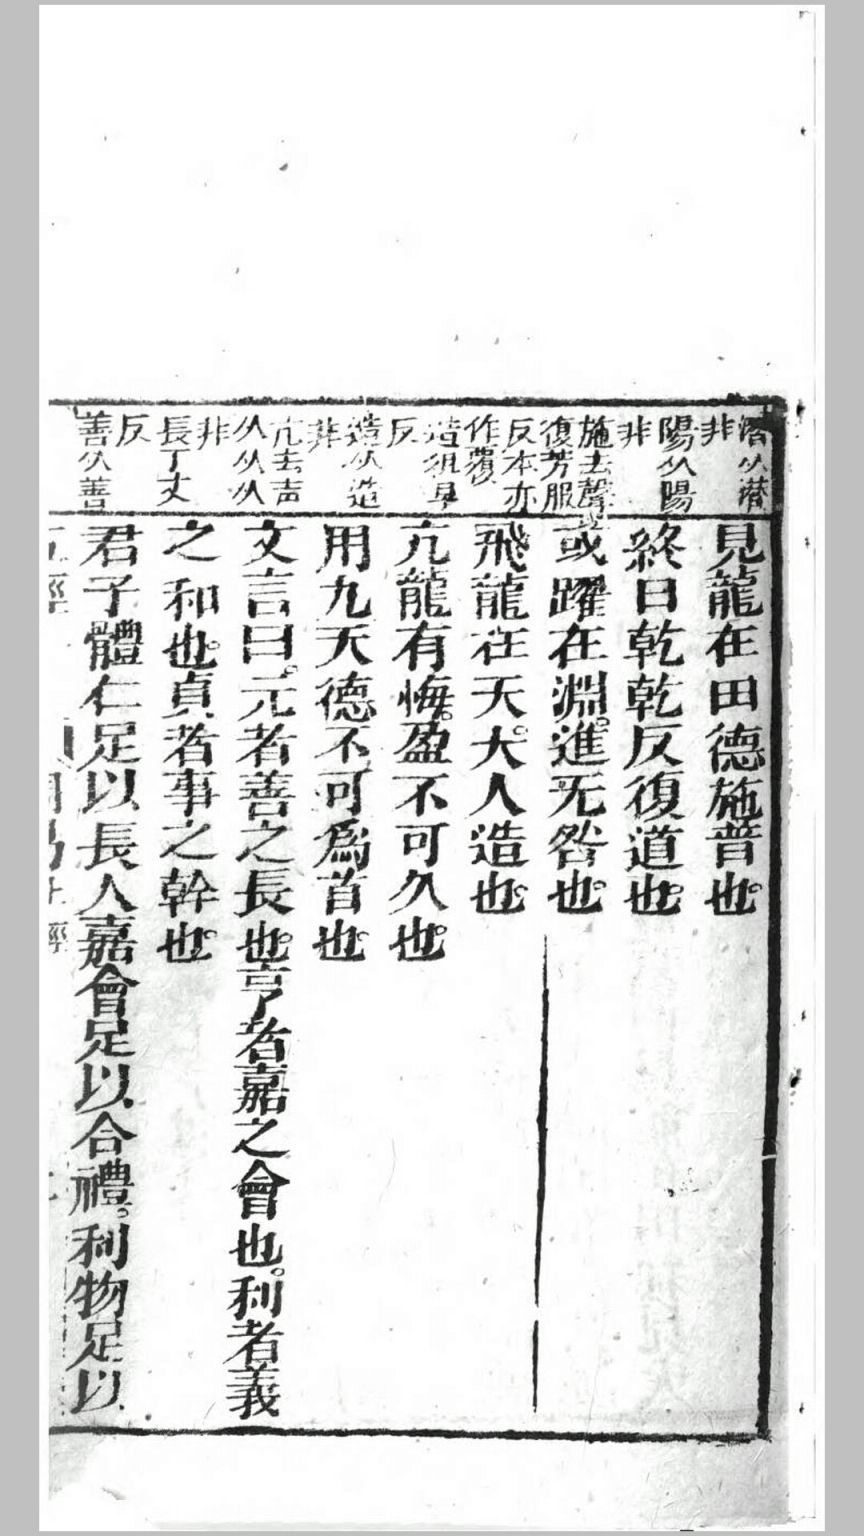 潛从濳
非
陽从昜
非
施去聲
復芳服
反本亦
作覆
造徂早
反
造从造
非
亢去声
从从从
非
長丁丈
反
善从善
見龍在田德施普也
終日乾乾反復道也
或躍在淵進无咎也
飛龍在天大人造也
亢龍有悔盈不可久也
用九天德不可爲首也
文言曰元者善之長也亨者嘉之會也利者義
之和也貞者事之幹也
君子體仁足以長人嘉會足以合禮利物足以